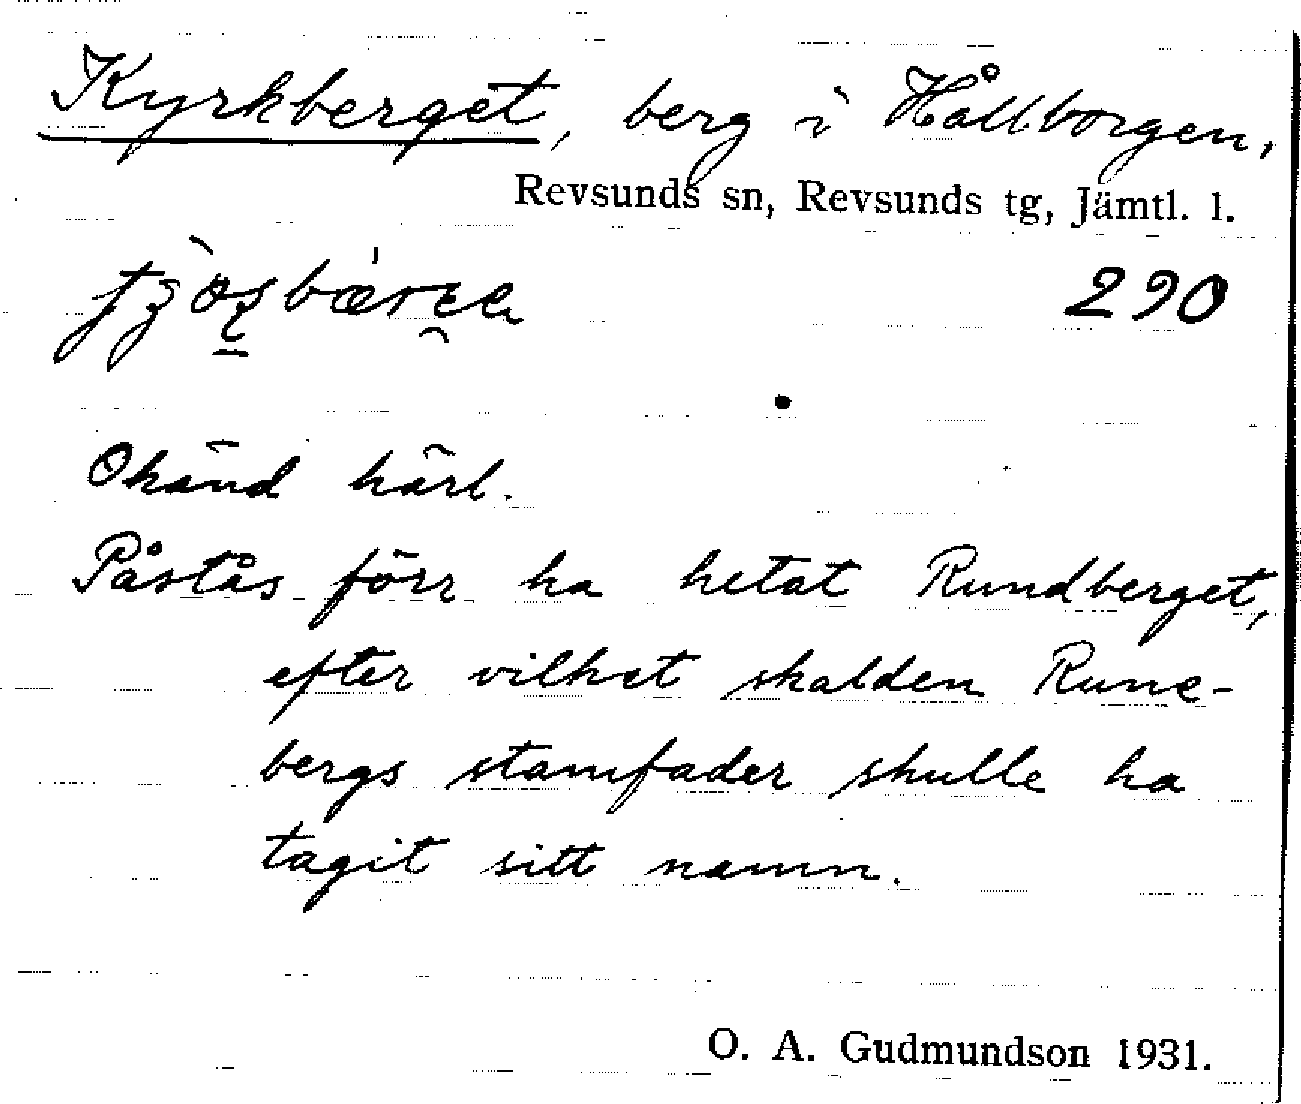 Kyrkberget, berg i Hållborgen,
Revsunds sn, Revsunds tg, Jämtl. l.
290
Okänd härl.
Påstås förr ha hetat Rundberget,
efter vilket skalden Rune-
bergs stamfader skulle ha
tagit sitt namn.
O. A. Gudmundson 1931.